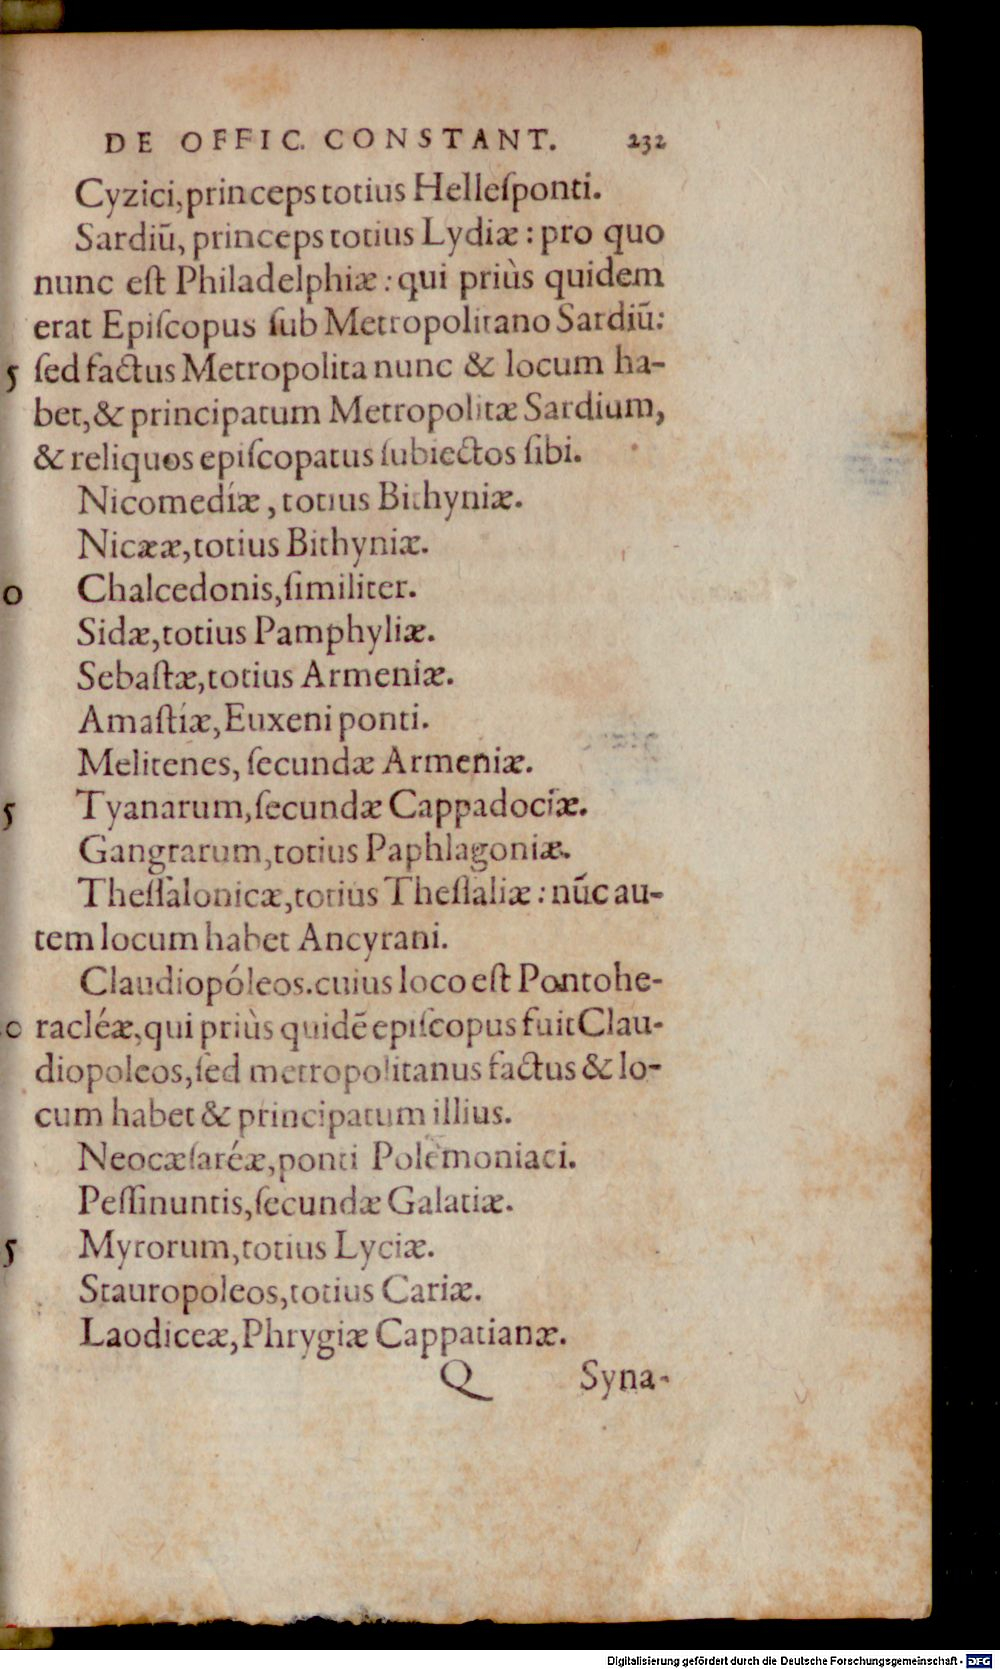 DE OFFIC. CONSTANT. 232
Cyzici, princeps totius Helleſponti.
Sardiū, princeps totius Lydiæ: pro quo
nunc eſt Philadelphiæ: qui priùs quidem
erat Epiſcopus ſub Metropolitano Sardiū:
5 ſed factus Metropolita nunc & locum ha-
bet, & principatum Metropolitæ Sardium,
& reliquos epiſcopatus ſubiectos ſibi.
Nicomedíæ, totius Bithyniæ.
Nicææ, totius Bithyniæ.
0 Chalcedonis, ſimiliter.
Sidæ, totius Pamphyliæ.
Sebaſtæ, totius Armeníæ.
Amaſtíæ, Euxeni ponti.
Melitenes, ſecundæ Armeniæ.
5 Tyanarum, ſecundæ Cappadocíæ.
Gangrarum, totius Paphlagoniæ.
Theſſalonicæ, totius Theſſaliæ: nūc au-
tem locum habet Ancyrani.
Claudiopóleos. cuius loco eſt Pontohe-
0 racléæ, qui priùs quidē epiſcopus fuit Clau-
diopoleos, ſed metropolitanus factus & lo-
cum habet & principatum illius.
Neocæſaréæ, ponti Polemoniaci.
Peſſinuntis, ſecundæ Galatiæ.
5 Myrorum, totius Lyciæ.
Stauropoleos, totius Cariæ.
Laodiceæ, Phrygiæ Cappatianæ.
Q Syna-
Digitalisierung gefördert durch die Deutsche Forschungsgemeinschaft - DFG